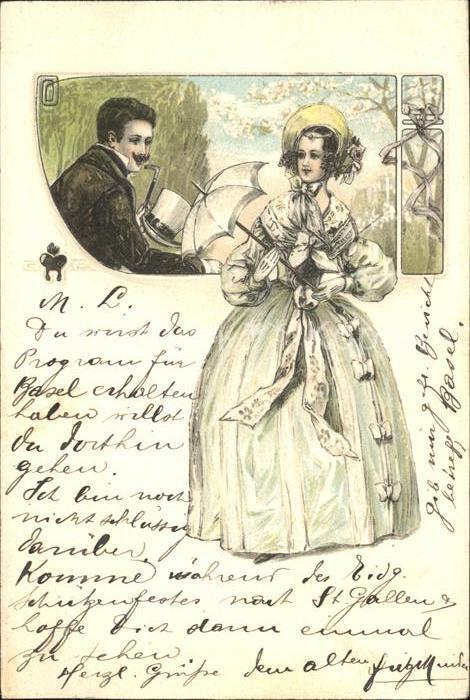 M. L.
Du wirst das
Program für
Basel erhalten
haben willst
du dorthin
gehen.
Ich bin noch
nicht schlüssig
darüber.
Komme während des Eidg.
Schützenfestes nach St. Gallen &
hoffe dich dann einmal
zu sehen.
Herzl. Grüße dem alten
gib mir g. fr. Bericht
betreff Basel.